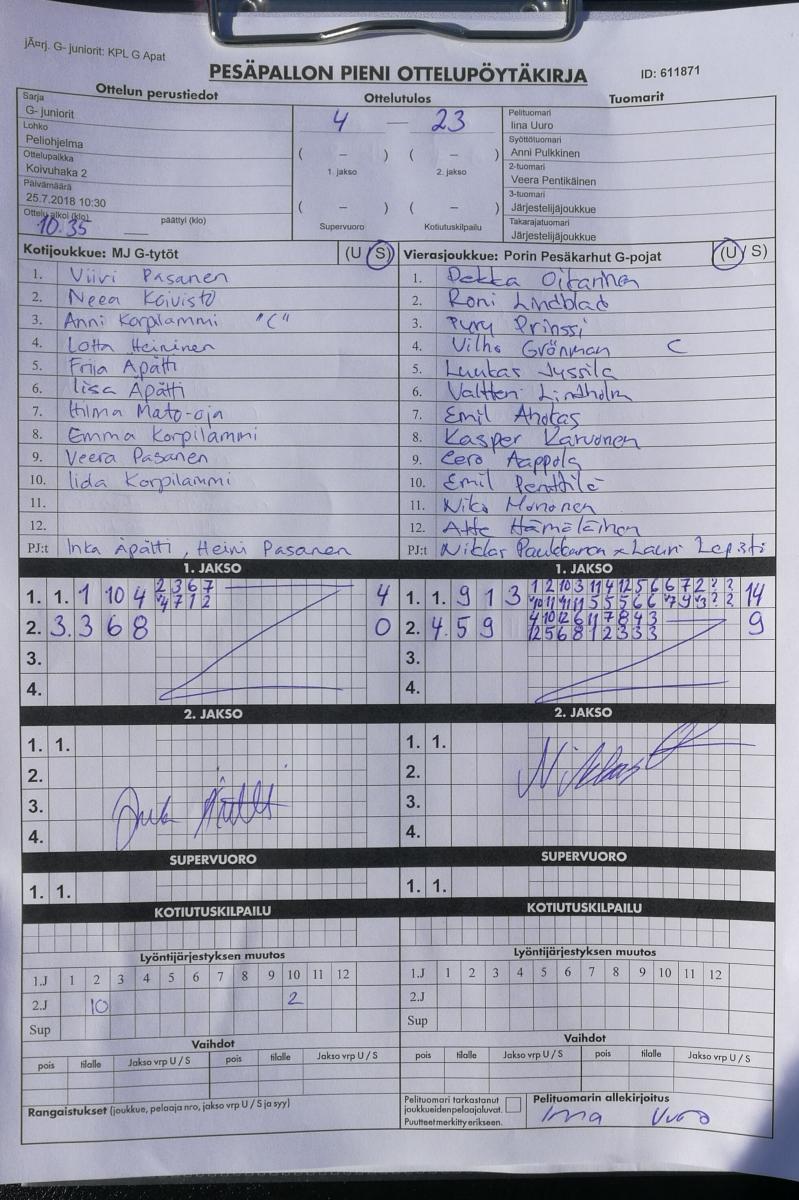 jÃ¤rj. G- juniorit: KPL G Apat
PESÄPALLON PIENI OTTELUPÖYTÄKIRJA
ID: 611871
Ottelun perustiedot
Sarja
G- juniorit
Lohko
Peliohjelma
Ottelupaikka
Koivuhaka 2
Päivämäärä
25.7.2018 10:30
Ottelu alkoi (klo) päättyi (klo)
10.35
Ottelutulos
4 — 23
( – ) ( – )
1. jakso 2. jakso
( – ) ( – )
Supervuoro Kotiutuskilpailu
Tuomarit
Pelituomari
Iina Uuro
Syöttötuomari
Anni Pulkkinen
2-tuomari
Veera Pentikäinen
3-tuomari
Järjestelijäjoukkue
Takarajatuomari
Järjestelijäjoukkue
Kotijoukkue: MJ G-tytöt (U S)
1. Viivi Pasanen
2. Neea Koivisto
3. Anni Korpilammi "C"
4. Lotta Heininen
5. Friia Äpätti
6. Iisa Äpätti
7. Hilma Mato-oja
8. Emma Korpilammi
9. Veera Pasanen
10. Iida Korpilammi
11.
12.
PJ:t Inka Äpätti, Heini Pasanen
Vierasjoukkue: Porin Pesäkarhut G-pojat (U/ S)
1. Pekka Oikarinen
2. Roni Lindblad
3. Pyry Prinssi
4. Vilho Grönman C
5. Luukas Jyssilä
6. Valtteri Lindholm
7. Emil Ahokas
8. Kasper Karvonen
9. Eero Aappola
10. Emil Penttilä
11. Niko Mononen
12. Atte Hämäläinen
PJ:t Niklas Paukkunen Lauri
1. JAKSO
1. 1. 1 10 4 2 3 6 7 4
4 7 1 2
2. 3. 3 6 8 0
3.
4.
1. JAKSO
1. 1. 9 1 3 1 2 10 3 11 4 12 5 6 6 7 2 ? ? 14
2. 4. 5 9 4 10 12 6 11 7 8 4 3 9
12 5 6 8 1 2 3 3 3
3.
4.
2. JAKSO
1. 1.
2.
3.
4.
2. JAKSO
1. 1.
2.
3.
4.
SUPERVUORO
1. 1.
SUPERVUORO
1. 1.
KOTIUTUSKILPAILU
KOTIUTUSKILPAILU
Lyöntijärjestyksen muutos
1.J 1 2 3 4 5 6 7 8 9 10 11 12
2.J 10 2
Sup
Lyöntijärjestyksen muutos
1.J 1 2 3 4 5 6 7 8 9 10 11 12
2.J
Sup
Vaihdot
pois tilalle Jakso vrp U / S pois tilalle Jakso vrp U / S
Vaihdot
pois tilalle Jakso vrp U / S pois tilalle Jakso vrp U / S
Rangaistukset (joukkue, pelaaja nro, jakso vrp U / S ja syy)
Pelituomari tarkastanut
joukkueidenpelaajaluvat.
Puutteetmerkitty erikseen.
Pelituomarin allekirjoitus
Iina Uuro